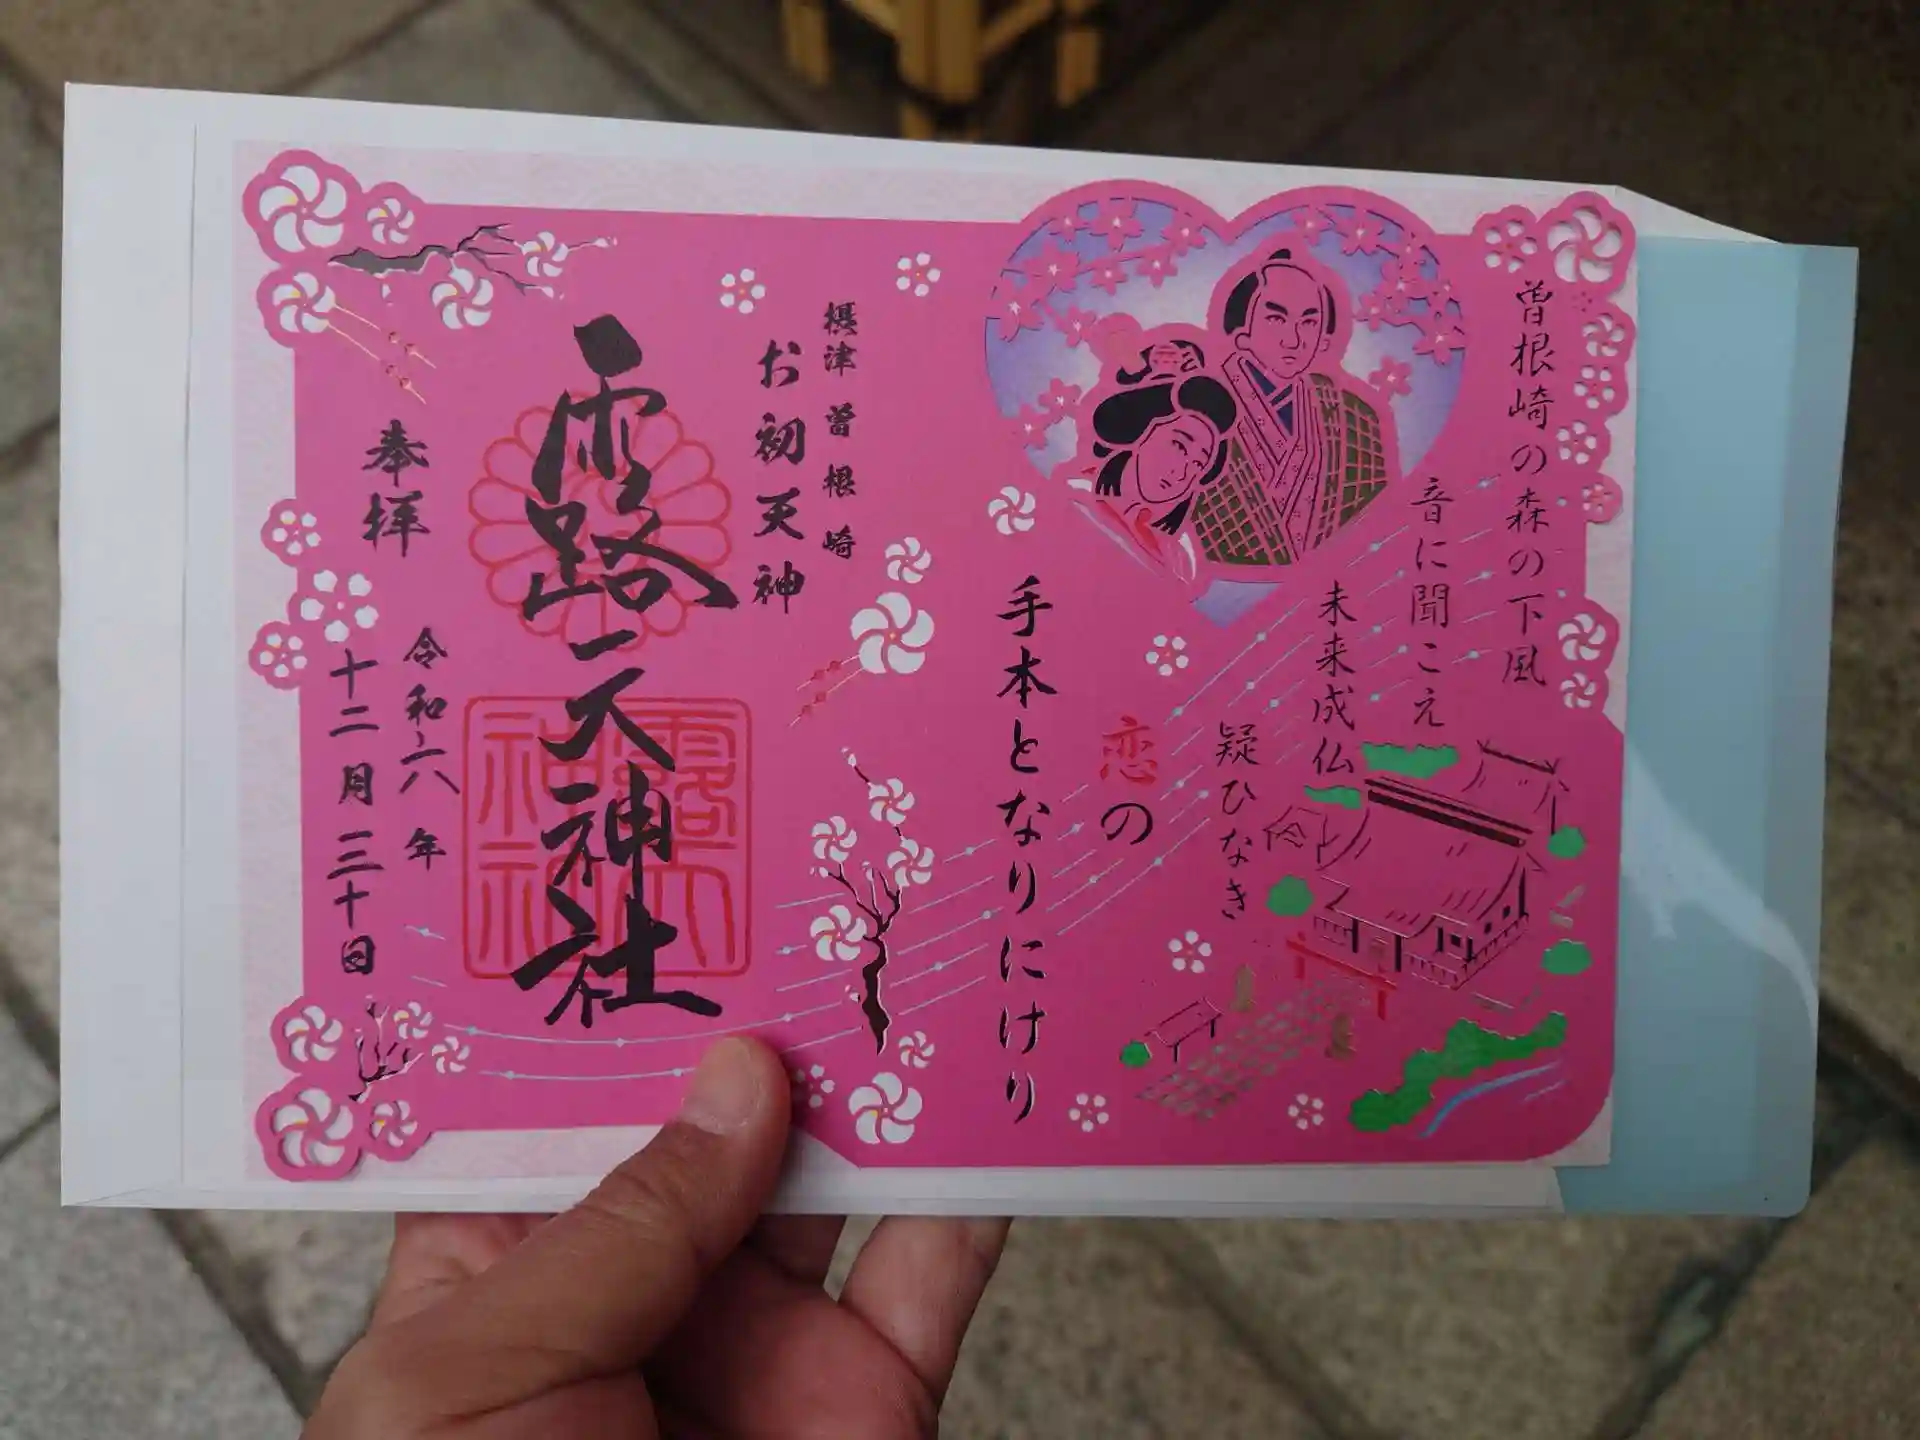 曽根崎の森の下風
音に聞こえ
未来成仏
疑ひなき
恋の
手本となりにけり
摂津 曽根崎
お初天神
露天神社
奉拝
令和六年
十二月三十日